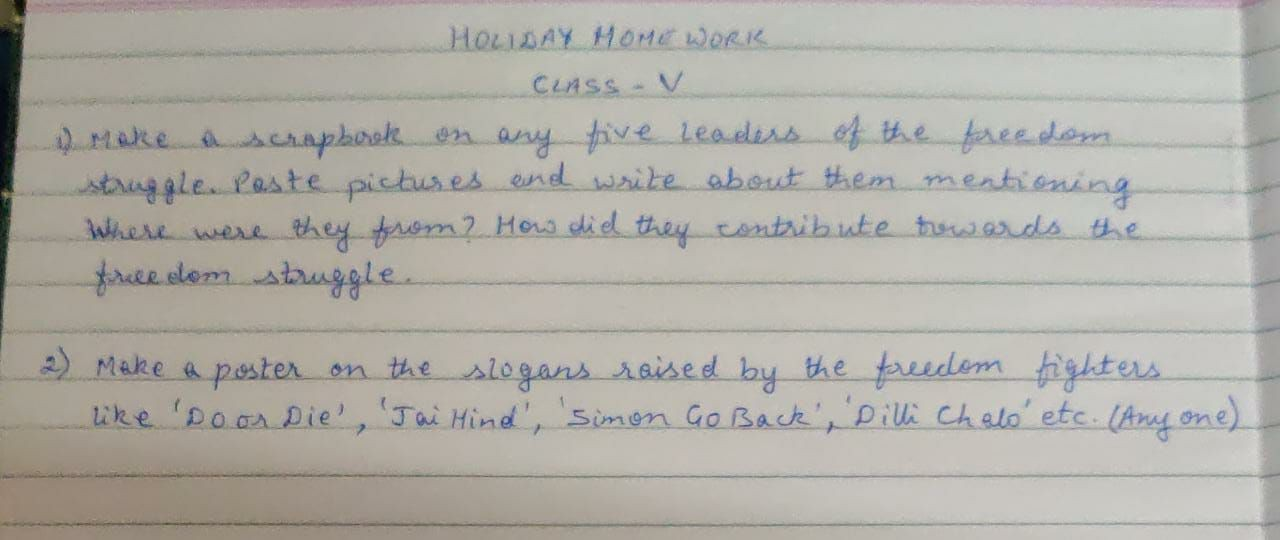 HOLIDAY HOME WORK
CLASS - V
1) Make a scrapbook on any five leaders of the freedom
struggle. Paste pictures and write about them mentioning
Where were they from? How did they contribute towards the
freedom struggle.
2) Make a poster on the slogans raised by the freedom fighters
like 'Do or Die', 'Jai Hind', 'Simon Go Back', 'Dilli Chalo' etc. (Any one)